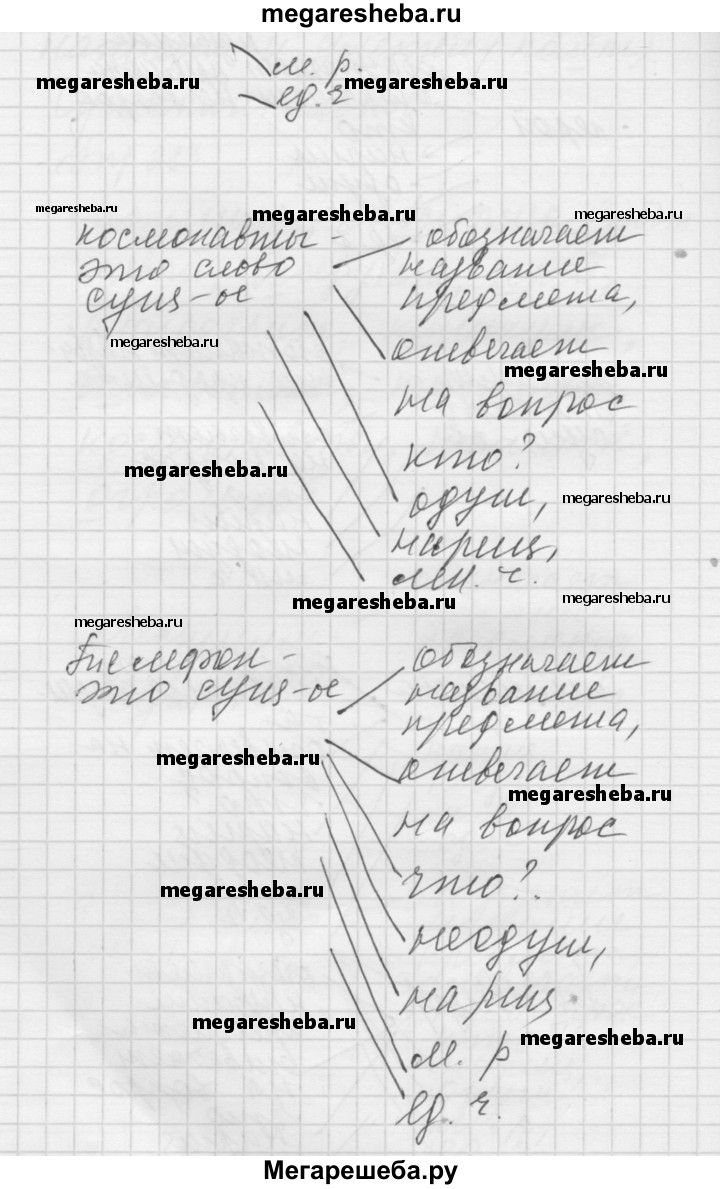 megaresheba.ru
м. р.
megaresheba.ru
megaresheba.ru
ед. ч
megaresheba.ru
megaresheba.ru
megaresheba.ru
космонавты -
обозначает
это слово
название
сущ-ое
предмета,
megaresheba.ru
отвечает
megaresheba.ru
на вопрос
кто?
megaresheba.ru
одуш,
megaresheba.ru
нариц,
мн. ч.
megaresheba.ru
megaresheba.ru
megaresheba.ru
телефон -
обозначает
это сущ-ое
название
предмета,
megaresheba.ru
отвечает
megaresheba.ru
на вопрос
что?.
megaresheba.ru
неодуш,
нариц
megaresheba.ru
megaresheba.ru
м. р
ед. ч.
Мегарешеба.ру